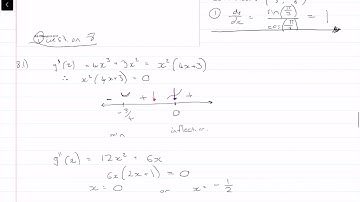 ① dy/dx = sin(π/3)/cos(π/3) = 1
Question 8
8.1) g'(x) = 4x³ + 3x² = x²(4x+3)
∴ x²(4x+3) = 0
- + +
-3/4 0
min inflection.
g''(x) = 12x² + 6x
6x(2x+1) = 0
x = 0 or x = -1/2